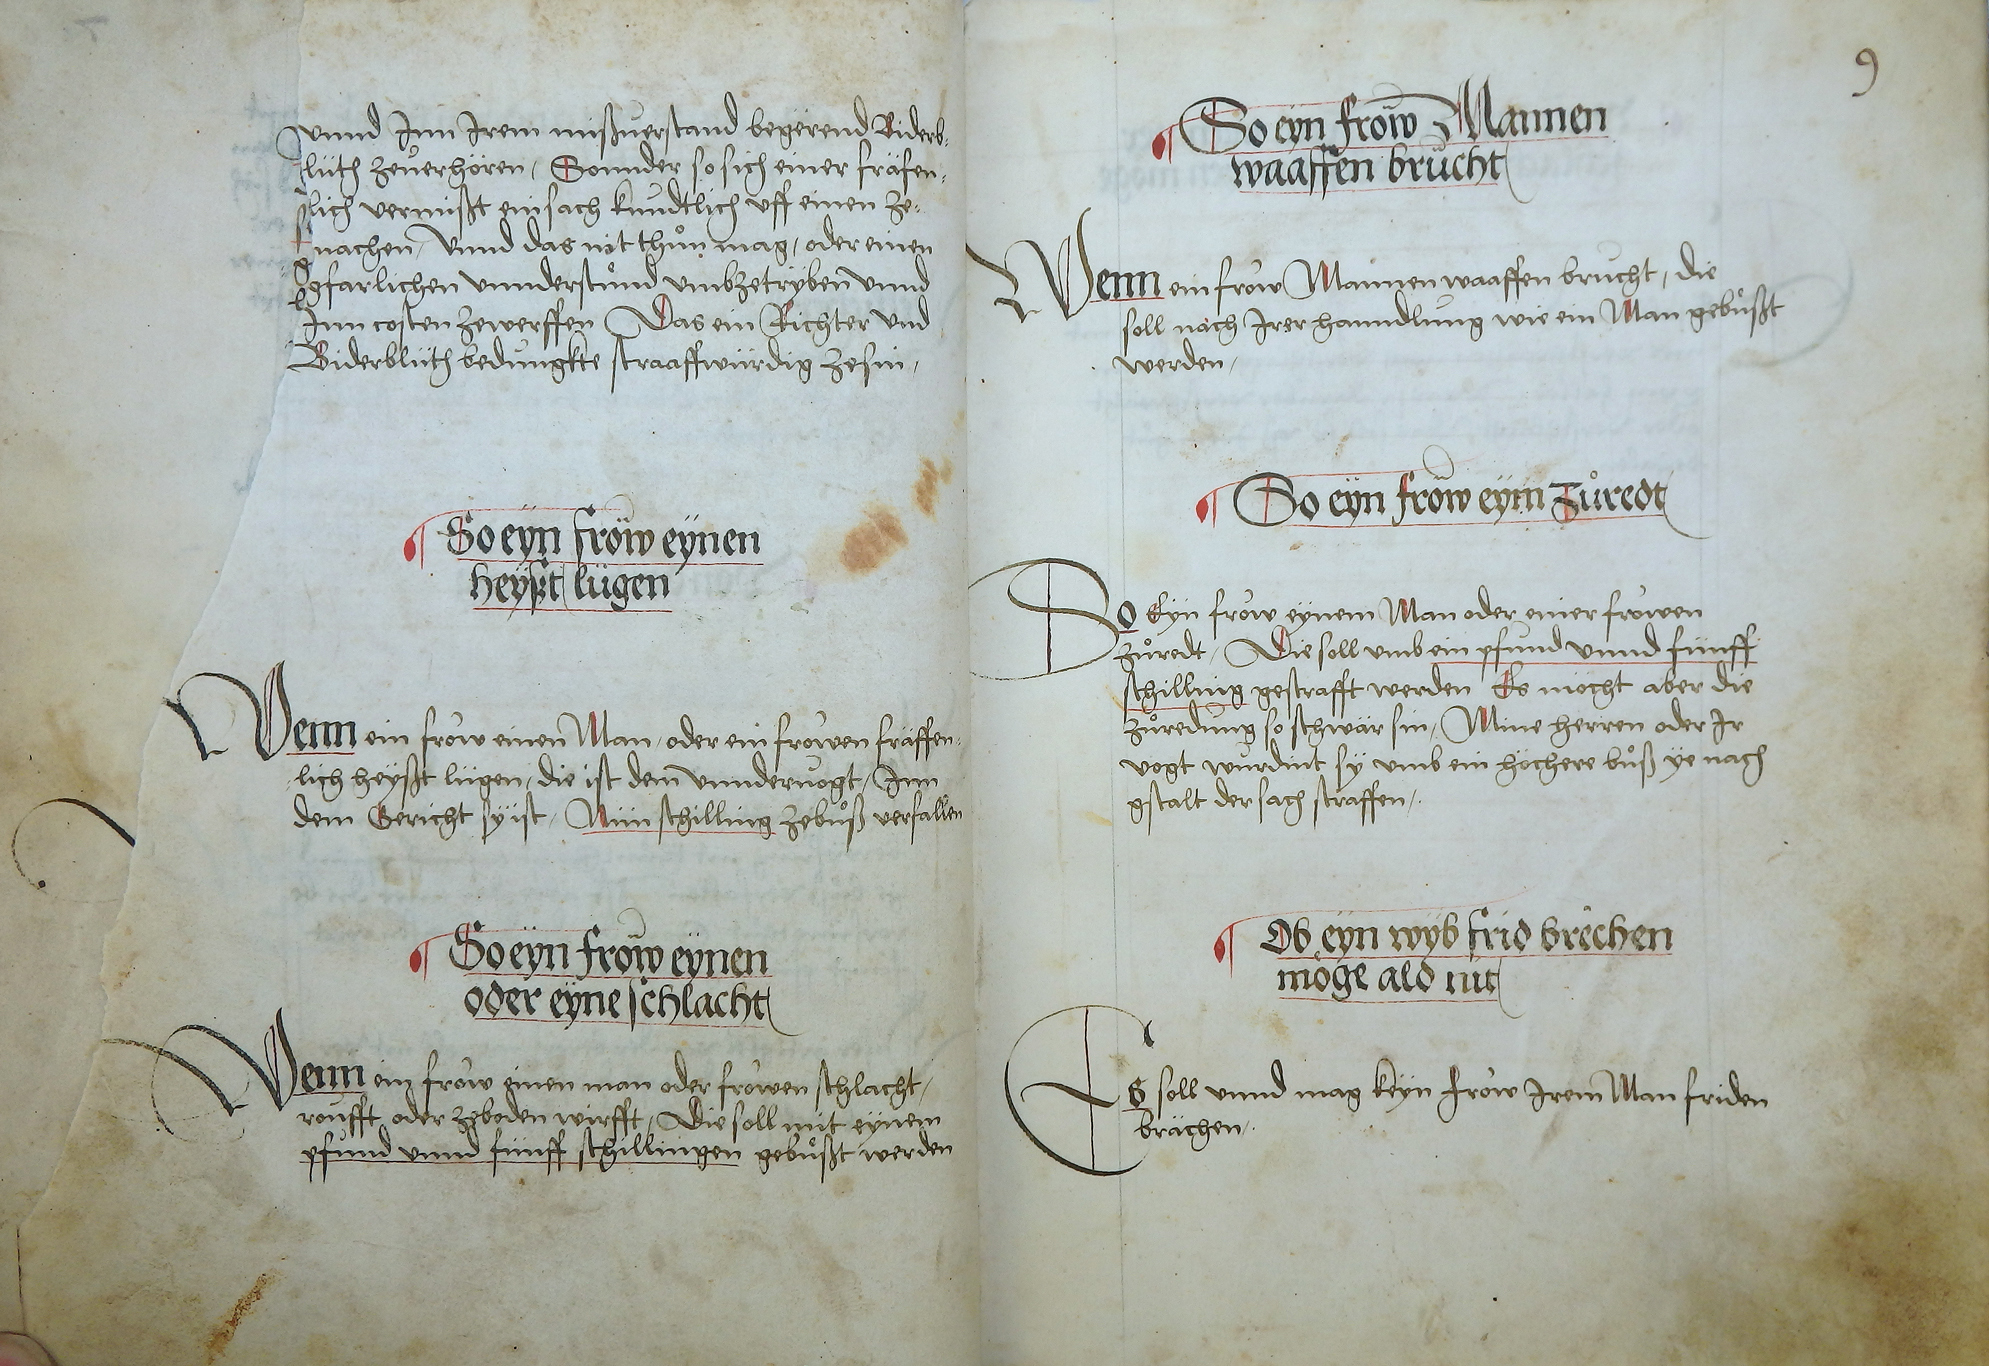 vnnd Inn Irem mißuerstand begerend Biderb-
lüth zeuerhören / Sonnder so sich einer fräfen-
lich vermißt ein sach kundtlich vff einen ze-
machen / Vnnd das nit thůn mag / oder einen
gfarlichen vnnderstůnd vmbzetryben vnnd
Inn costen zewerffen Das ein Richter vnd
Biderblüth bedungkte straaffwürdig ze sin /
So eyn frow eynen
heyßt lügen
Wenn ein frow einen Man / oder ein frowen fräffen-
lich heyßt lügen / die ist dem vnndervogt / Inn
dem Gericht sy ist / Nün schilling zebůß verfallen
So eyn frow eynen
oder eyne schlacht
Wenn ein frow einen man oder frowen schlacht /
roufft oder zeboden wirfft / Die soll mit eynem
pfund vnnd fünff schillingen gebůßt werden
9
So eyn frow Mannen
waaffen brucht
Wenn ein frow Mannen waaffen brucht / die
soll nach Irer hanndlung wie ein Man gebůßt
werden /
So eyn frow eym zůredt
So Eyn frow eynem Man oder einer frowen
zůredt / Die soll vmb ein pfund vnnd fünff
schilling gestrafft werden Es möcht aber die
zůredung so schwär sin / Mine herren oder Ir
vogt wurdint sy vmb ein höchere bůß ye nach
gstalt der sach straffen /.
Ob eyn wyb frid brechen
möge ald nit
Es soll vnnd mag keyn frow Irem Man friden
brächen /.